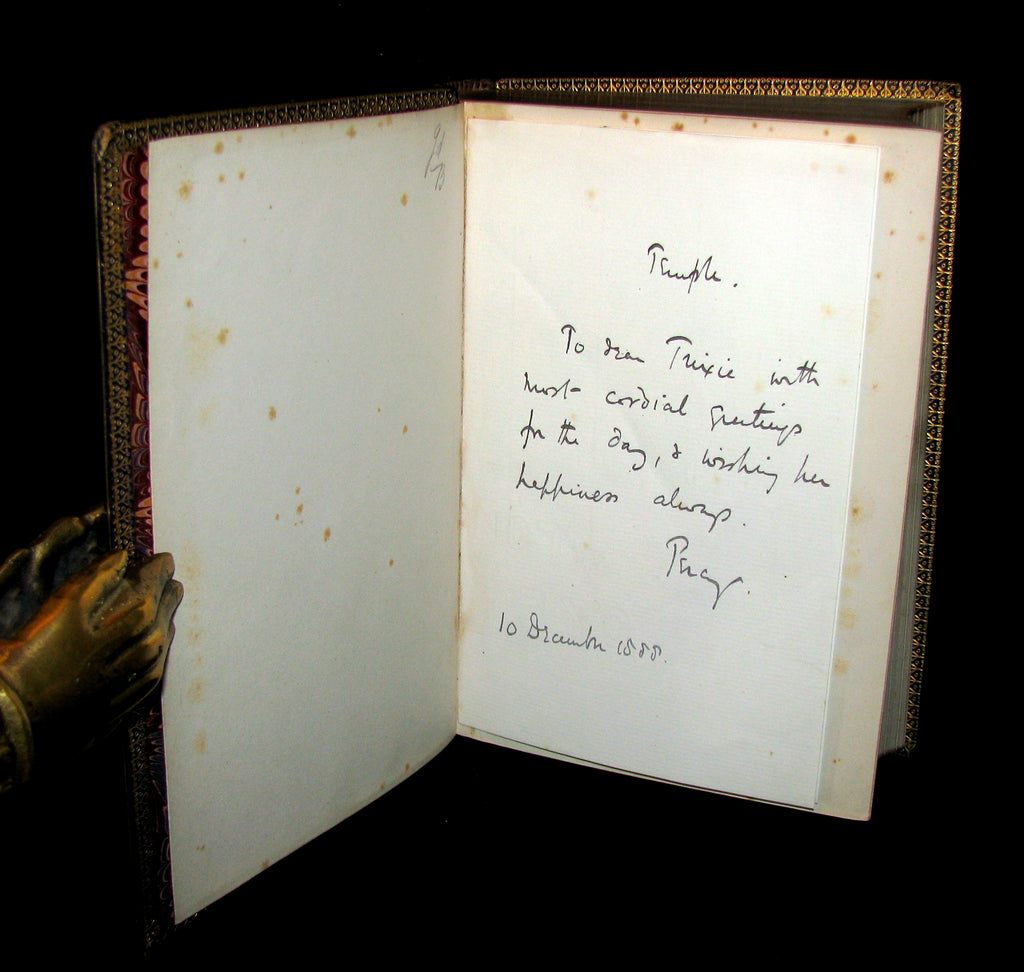 Temple.
To dear Trixie with
most cordial greetings
for the day, & wishing her
happiness always.
Percy.
10 December 1888.